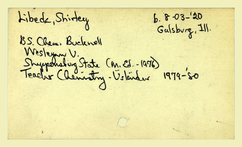 Libeck, Shirley
b. 8-03-'20
Galsburg, Ill.
B.S. Chem. Bucknell
Wesleyan U.
Shippensburg State (M. Ed. - 1976)
Teacher Chemistry - 1979-'80